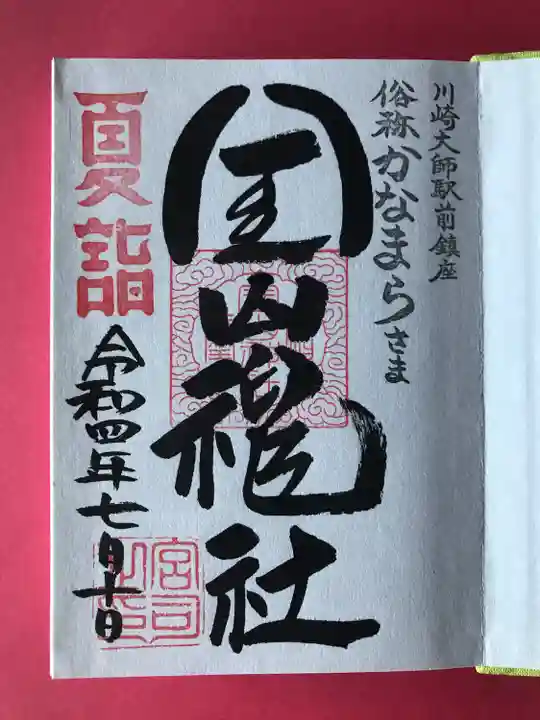 川崎大師駅前鎮座
俗称かなまらさま
金山神社
夏詣
令和四年七月十日
宮司